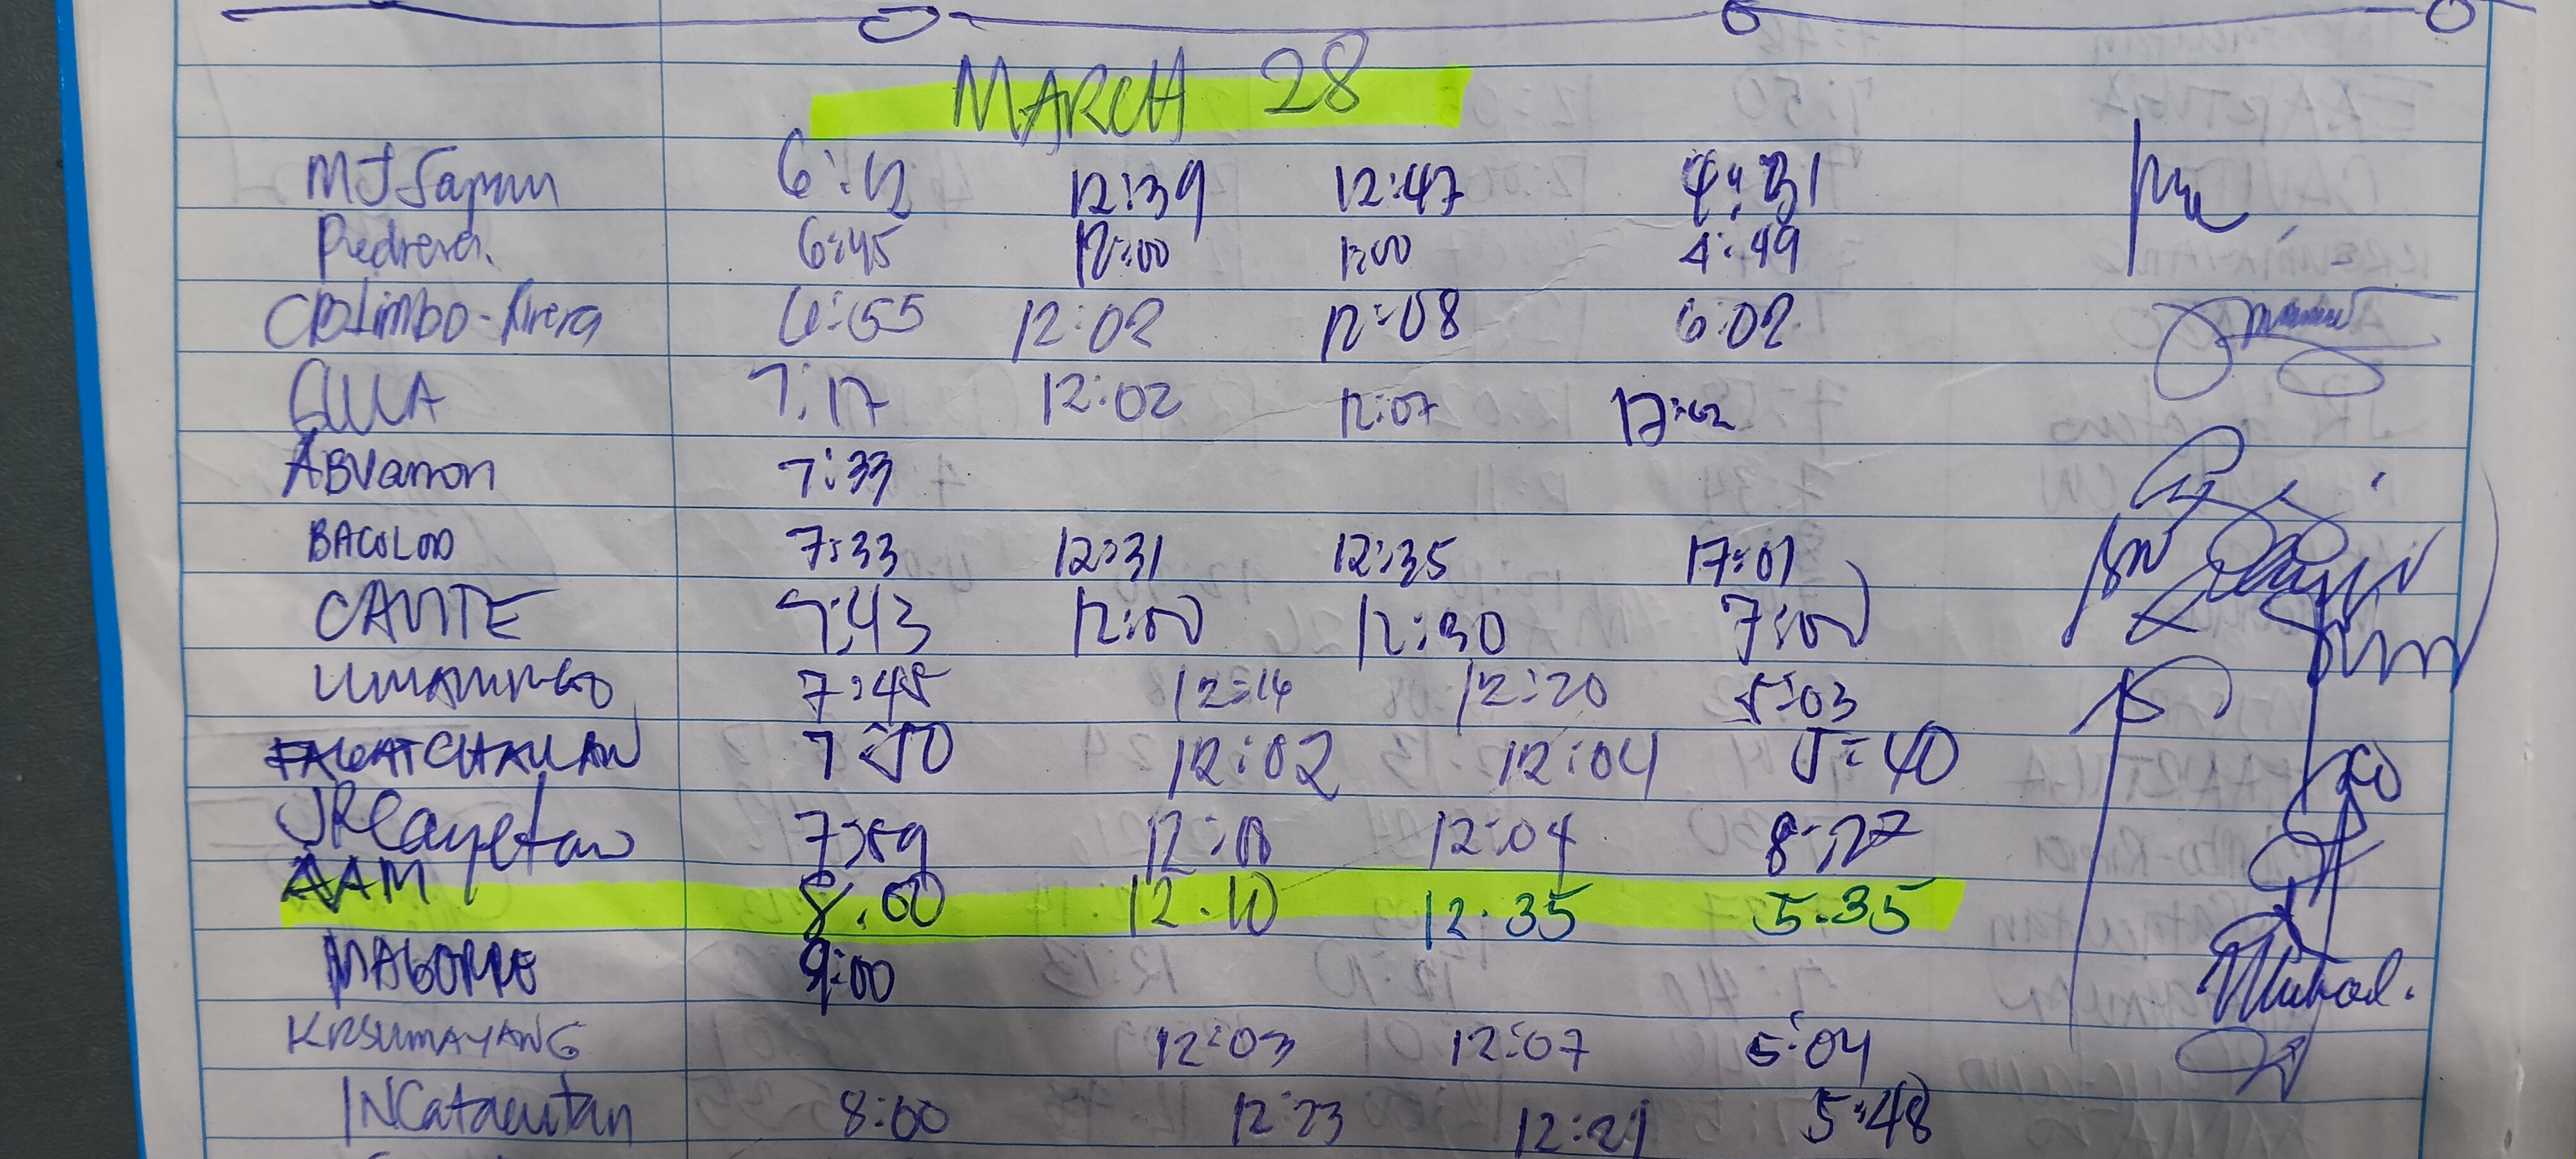 MARCH 28
MJ Sapun 6:12 12:39 12:47 4:31
Pedrera. 6:45 12:00 1:00 4:49
CBLimbo-Rivera 6:55 12:02 12:08 6:02
7:17 12:02 12:07 17:02
7:33
BACOLOD 7:33 12:31 12:35 17:01
CAVITE 7:43 12:00 12:30 7:00
UMAMINGO 7:45 12:16 12:20 5:03
7:50 12:02 12:04 5:40
JRCayetano 7:59 12:04 8:27
AAM 8:00 12.10 12.35 5.35
9:00
KRSUMAYANG 12:03 12:07 5:04
INCatacutan 8:00 12:23 5:48